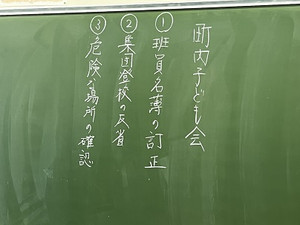 町内子ども会
①班員名薄の訂正
②集団登校の反省
③危険な場所の確認